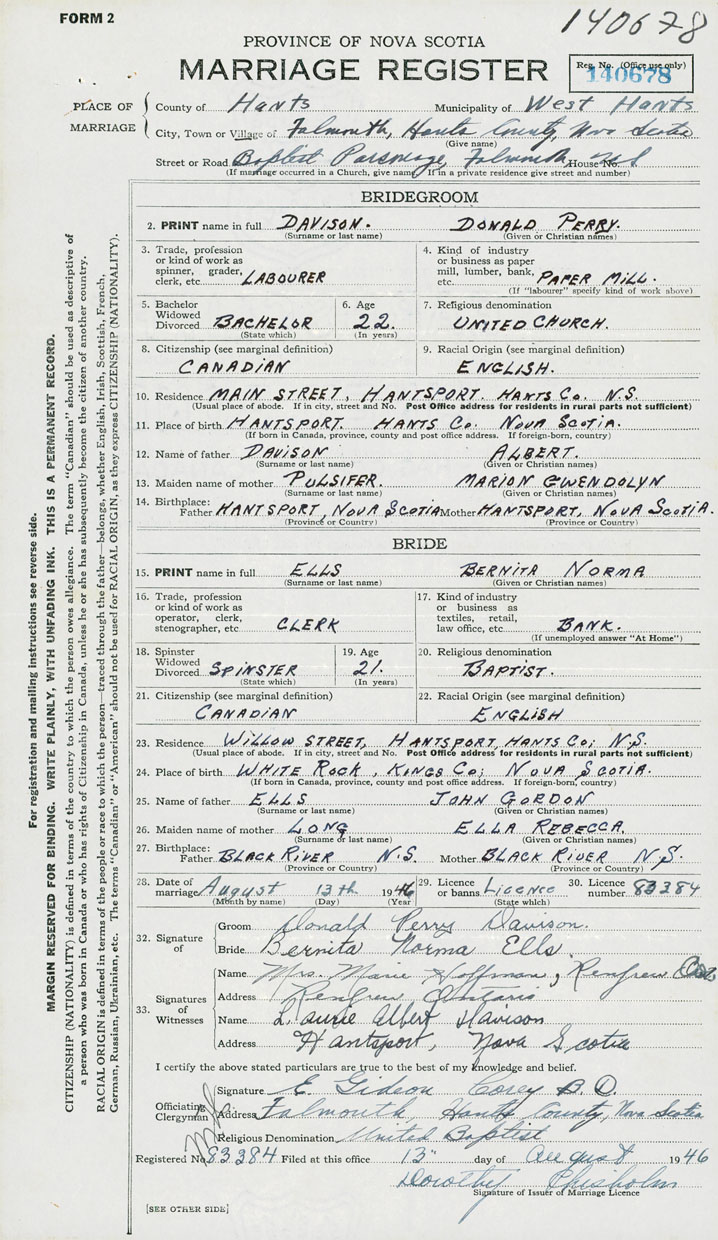 FORM 2
140678
PROVINCE OF NOVA SCOTIA
MARRIAGE REGISTER
Reg. No. (Office use only)
140678
PLACE OF MARRIAGE
County of Hants Municipality of West Hants
City, Town or Village of Falmouth, Hants County, Nova Scotia
(Give name)
Street or Road Baptist Parsonage, Falmouth House No.
(If marriage occurred in a Church, give name. If in a private residence give street and number)
BRIDEGROOM
2. PRINT name in full DAVISON. DONALD PERRY.
(Surname or last name) (Given or Christian names)
3. Trade, profession or kind of work as spinner, grader, clerk, etc. LABOURER
4. Kind of industry or business as paper mill, lumber, bank, etc. PAPER MILL.
(If "labourer" specify kind of work above)
5. Bachelor Widowed Divorced BACHELOR
(State which)
6. Age 22.
(In years)
7. Religious denomination UNITED CHURCH.
8. Citizenship (see marginal definition) CANADIAN
9. Racial Origin (see marginal definition) ENGLISH.
10. Residence MAIN STREET, HANTSPORT. HANTS CO. N.S.
(Usual place of abode. If in city, street and No. Post Office address for residents in rural parts not sufficient)
11. Place of birth HANTSPORT. HANTS CO. NOVA SCOTIA.
(If born in Canada, province, county and post office address. If foreign-born, country)
12. Name of father DAVISON ALBERT.
(Surname or last name) (Given or Christian names)
13. Maiden name of mother PULSIFER. MARION GWENDOLYN
(Surname or last name) (Given or Christian names)
14. Birthplace: Father HANTSPORT, NOVA SCOTIA Mother HANTSPORT, NOVA SCOTIA.
(Province or Country) (Province or Country)
BRIDE
15. PRINT name in full ELLS BERNITA NORMA
(Surname or last name) (Given or Christian names)
16. Trade, profession or kind of work as operator, clerk, stenographer, etc. CLERK
17. Kind of industry or business as textiles, retail, law office, etc. BANK.
(If unemployed answer "At Home")
18. Spinster Widowed Divorced SPINSTER
(State which)
19. Age 21.
(In years)
20. Religious denomination BAPTIST.
21. Citizenship (see marginal definition) CANADIAN
22. Racial Origin (see marginal definition) ENGLISH
23. Residence WILLOW STREET, HANTSPORT, HANTS CO; N.S.
(Usual place of abode. If in city, street and No. Post Office address for residents in rural parts not sufficient)
24. Place of birth WHITE ROCK, KINGS CO; NOVA SCOTIA.
(If born in Canada, province, county and post office address. If foreign-born, country)
25. Name of father ELLS JOHN GORDON
(Surname or last name) (Given or Christian names)
26. Maiden name of mother LONG ELLA REBECCA.
(Surname or last name) (Given or Christian names)
27. Birthplace: Father BLACK RIVER N.S. Mother BLACK RIVER N.S.
(Province or Country) (Province or Country)
28. Date of marriage August 13th 1946
(Month by name) (Day) (Year
29. Licence or banns Licence
(State which)
30. Licence number 83384
32. Signature of
Groom Donald Perry Davison.
Bride Bernita Norma Ells.
33. Signatures of Witnesses
Name Mrs. Marie Hoffman, Renfrew Ont
Address Renfrew Ontario
Name Laurie Albert Davison
Address Hantsport, Nova Scotia
I certify the above stated particulars are true to the best of my knowledge and belief.
Officiating Clergyman
Signature E. Gideon Corey B. D.
Address Falmouth, Hants County, Nova Scotia
Religious Denomination United Baptist
Registered No. 83384 Filed at this office 13" day of August 1946
Dorothy Chisholm
Signature of Issuer of Marriage Licence
[SEE OTHER SIDE]
For registration and mailing instructions see reverse side.
MARGIN RESERVED FOR BINDING. WRITE PLAINLY, WITH UNFADING INK. THIS IS A PERMANENT RECORD.
CITIZENSHIP (NATIONALITY) is defined in terms of the country to which the person owes allegiance. The term "Canadian" should be used as descriptive of
a person who was born in Canada or who has rights of Citizenship in Canada, unless he or she has subsequently become the citizen of another country.
RACIAL ORIGIN is defined in terms of the people or race to which the person—traced through the father—belongs, whether English, Irish, Scottish, French,
German, Russian, Ukrainian, etc. The terms "Canadian" or "American" should not be used for RACIAL ORIGIN, as they express CITIZENSHIP (NATIONALITY).